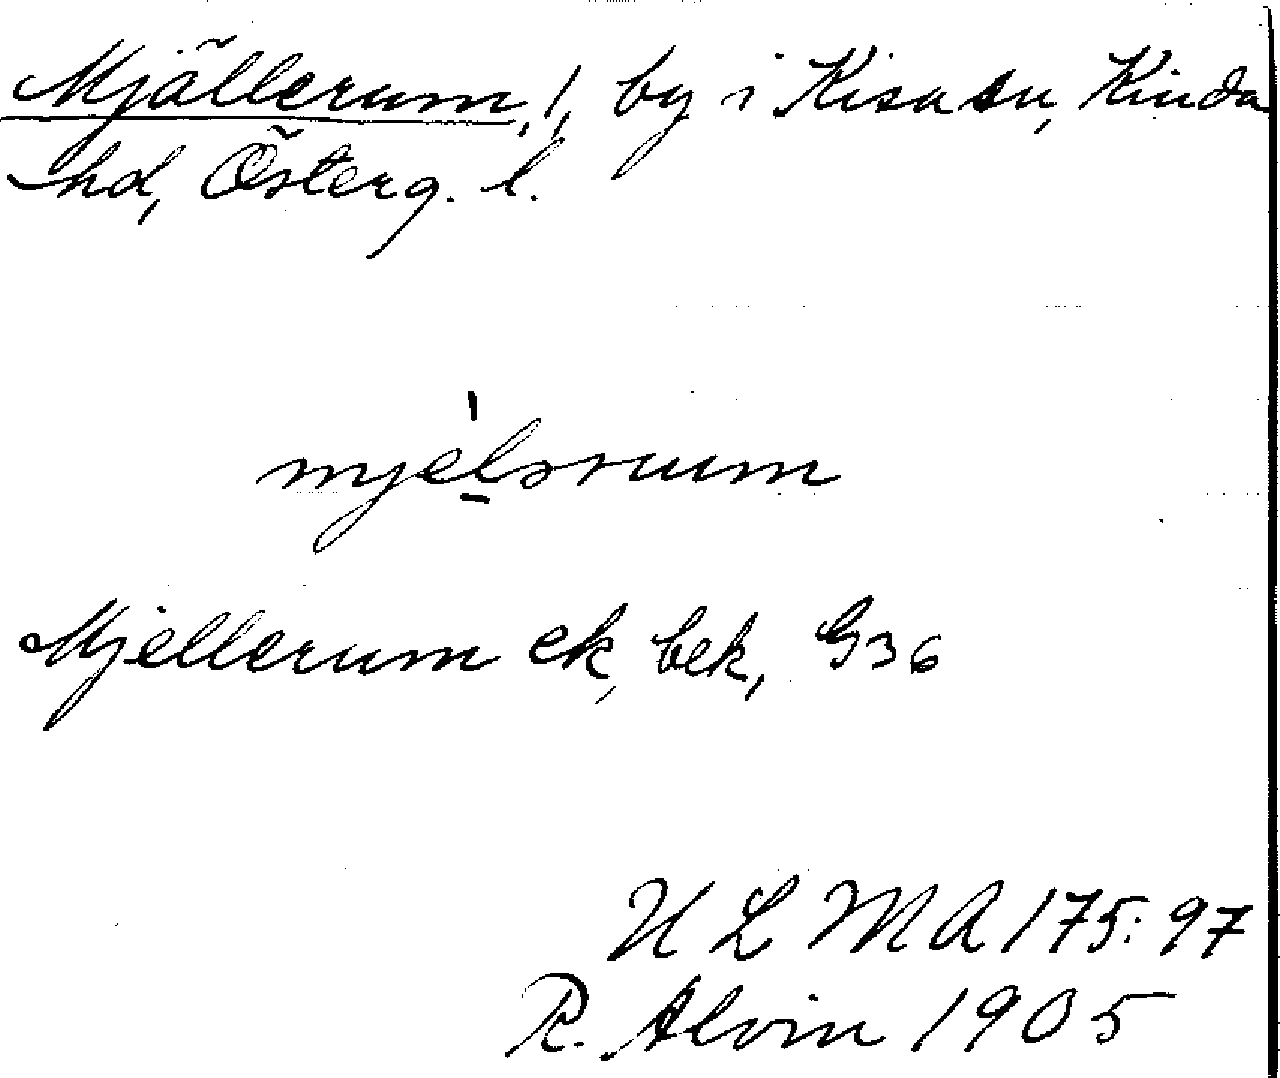 Mjällerum, !, by i Kisa sn, Kinda
hd, Österg. l.
mjelsruum
Mjellerum ek, bek, G36
ULMA 175:97
R. Alvin 1905